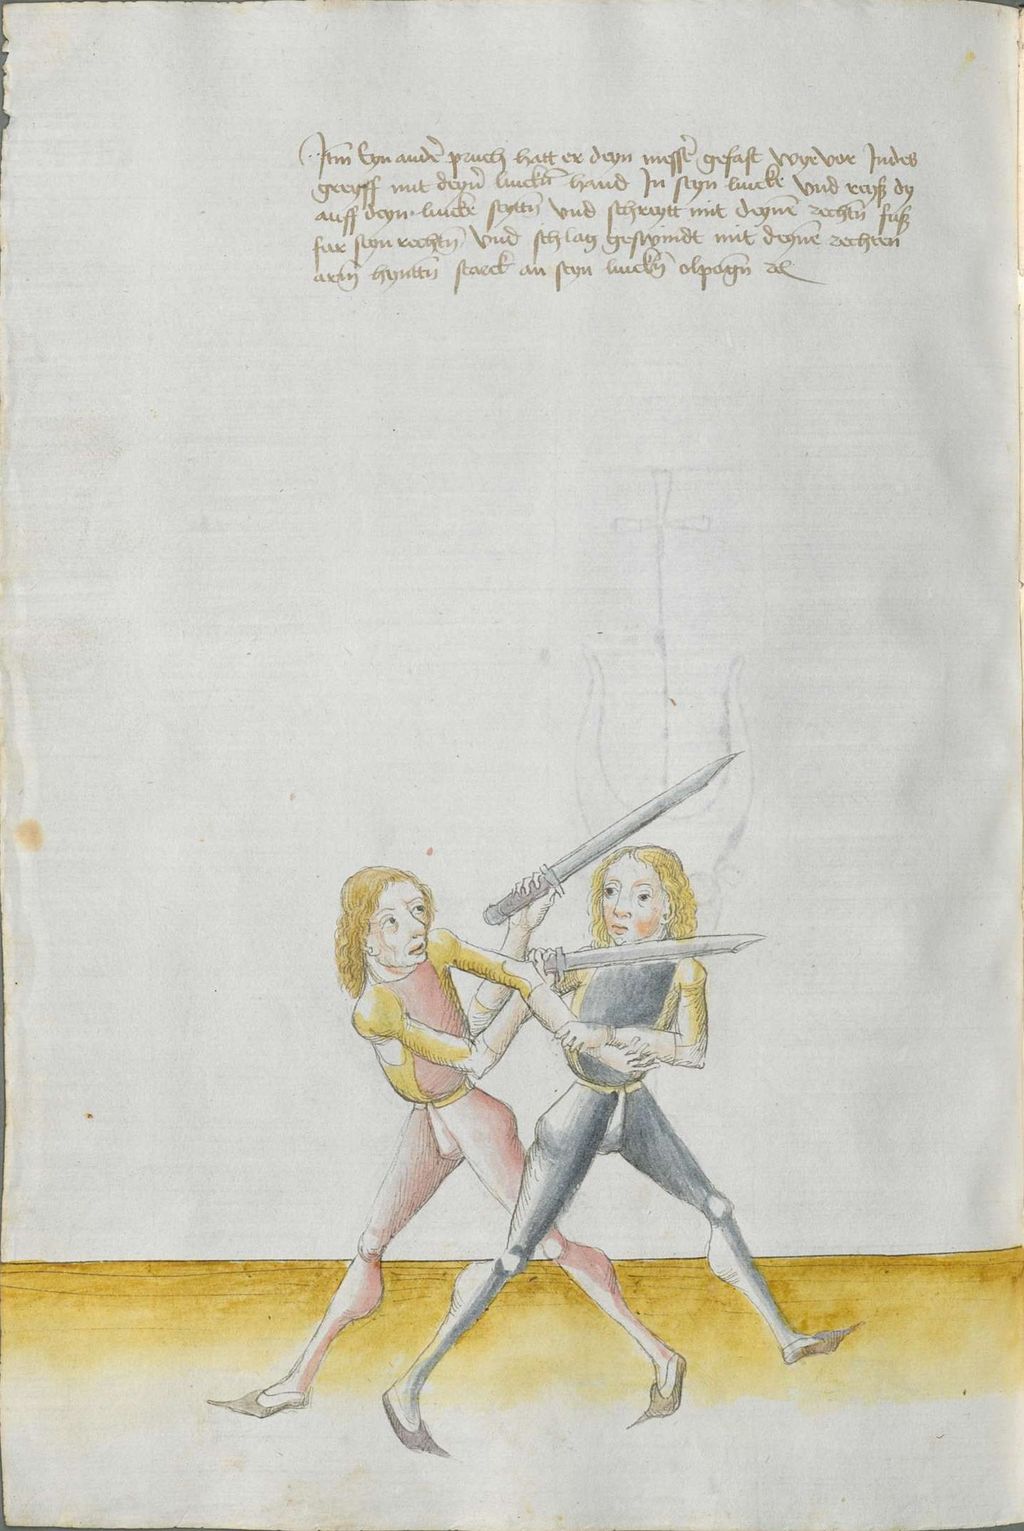 Itm̄ Eyn ander̄ pruch hatt er deyn messer̄ gefast wye vor Indes
greyff mit deyner̄ lincken̄ hand In seyn lincke vnd reyß dy
auff deyn lincke seyttn̄ vnd schreytt mit deynē rechtn̄ fuß
far seyn rechtn̄ vnd schlag geswindt mit deynē rechten
arm̄ hynttn̄ starck an seyn linckn̄ elpogn̄ ꝛc